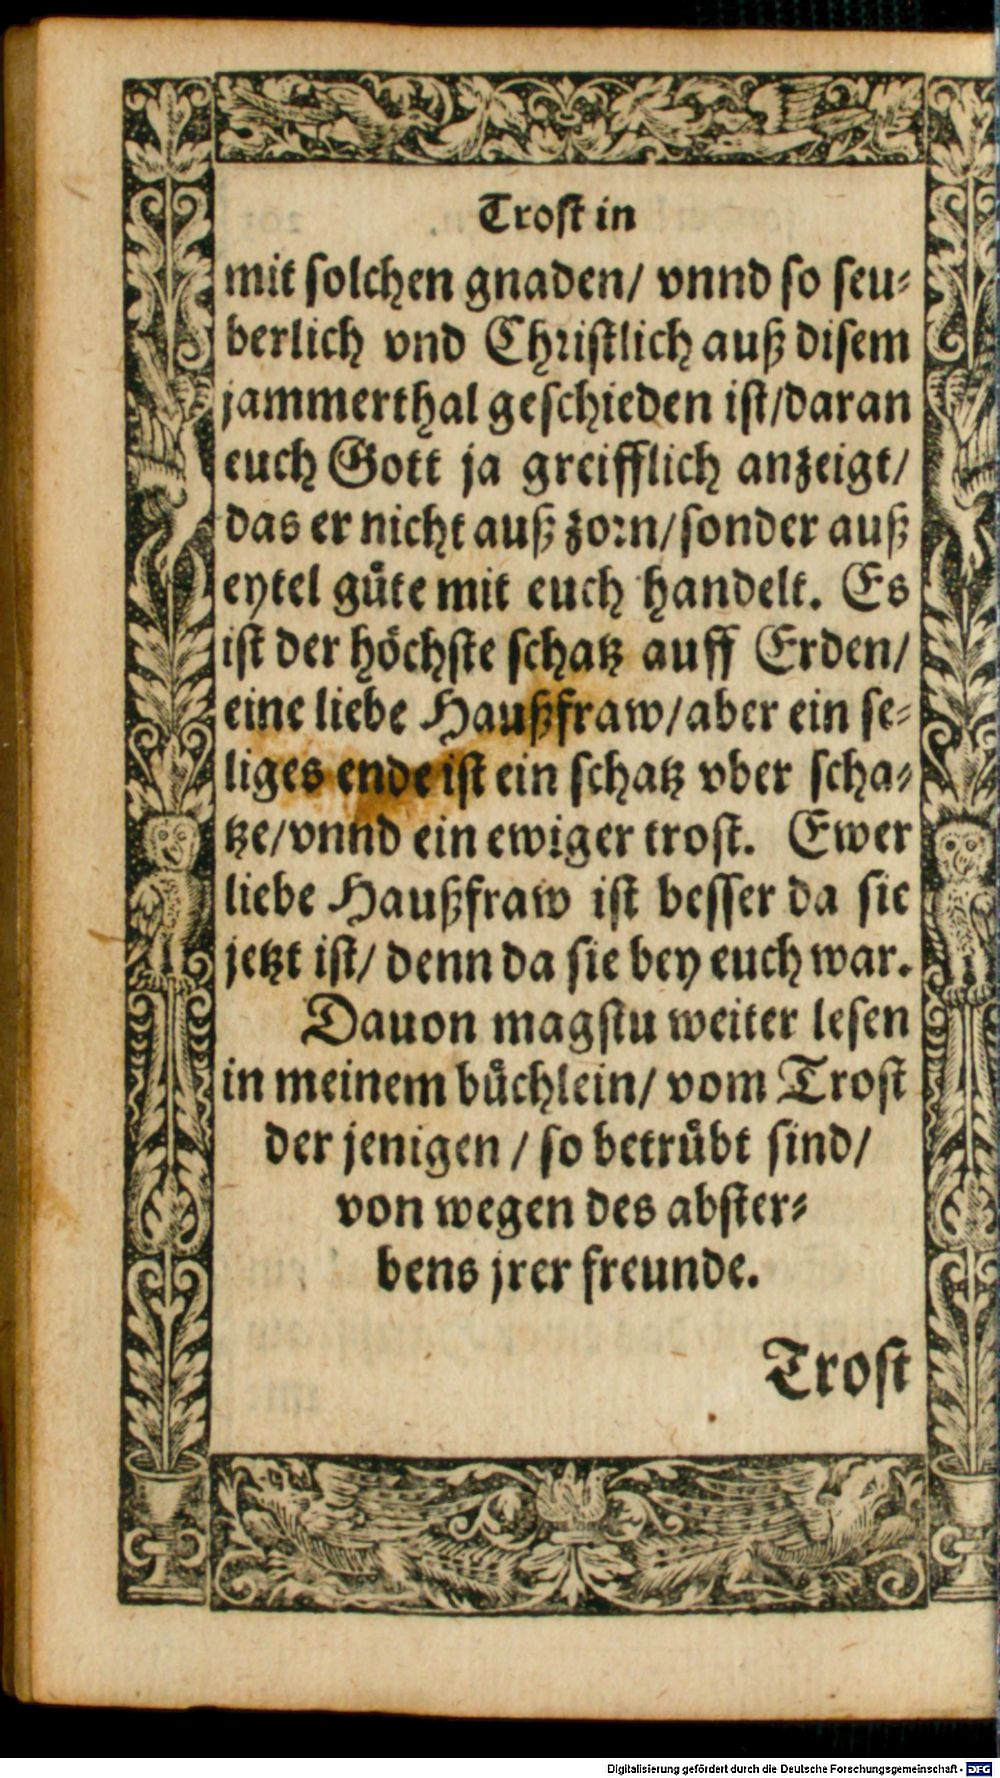 Trost in
mit solchen gnaden/ vnnd so seu⸗
berlich vnd Christlich auß disem
jammerthal geschieden ist/daran
euch Gott ja greifflich anzeigt/
das er nicht auß zorn/sonder auß
eytel guͤte mit euch handelt. Es
ist der hoͤchste schatz auff Erden/
eine liebe Haußfraw/aber ein se⸗
liges ende ist ein schatz vber scha⸗
tze/vnnd ein ewiger trost. Ewer
liebe Haußfraw ist besser da sie
jetzt ist/ denn da sie bey euch war.
Dauon magstu weiter lesen
in meinem buͤchlein/ vom Trost
der jenigen / so betruͤbt sind/
von wegen des abster⸗
bens jrer freunde.
Trost
Digitalisierung gefördert durch die Deutsche Forschungsgemeinschaft - DFG